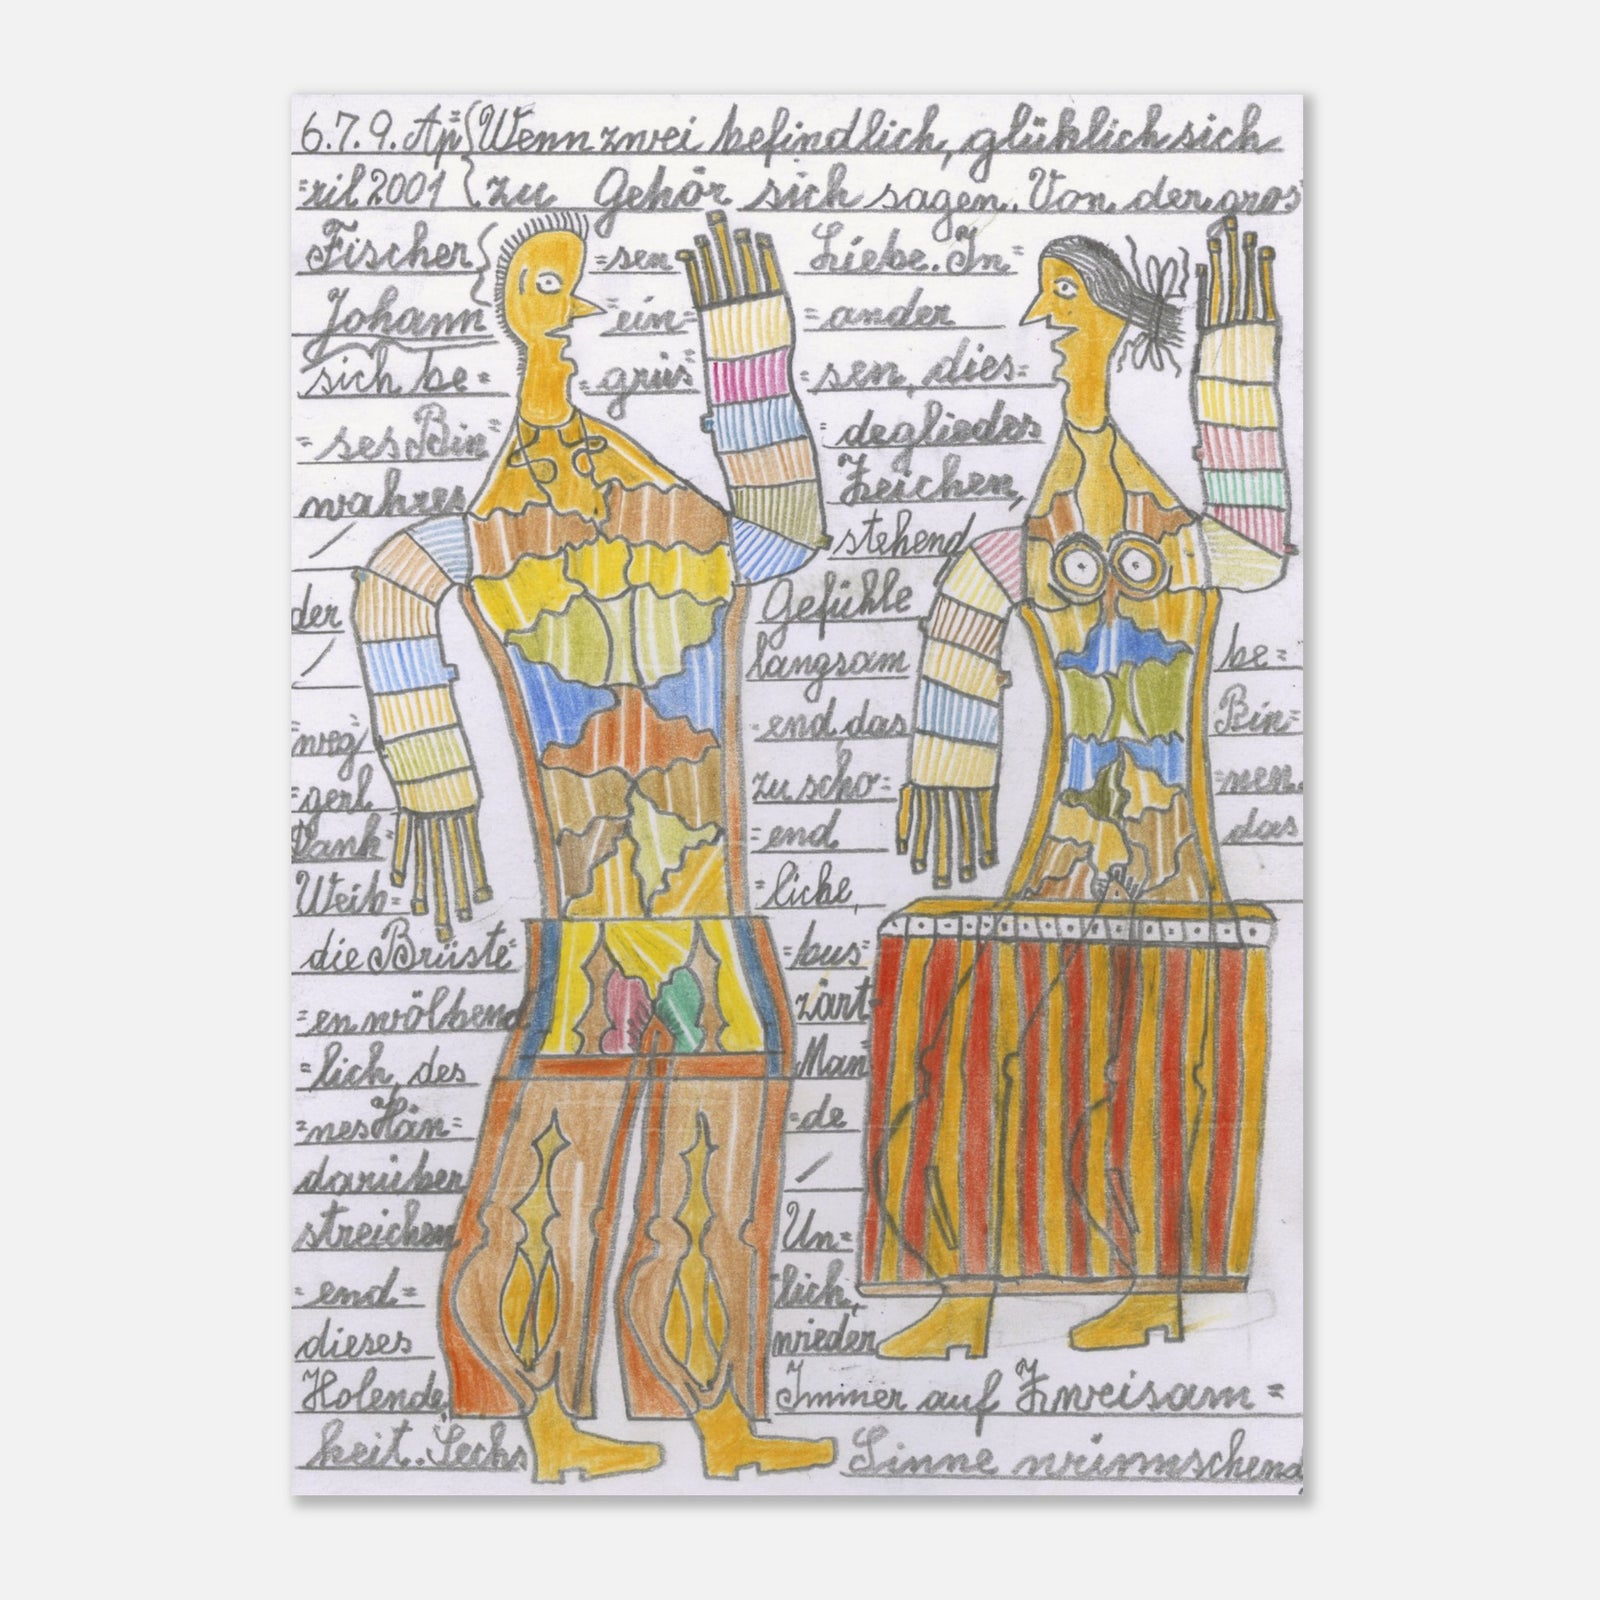 6.7.9. Ap= Wenn zwei befindlich, glüklich sich
=ril 2001 zu Gehör sich sagen. Von der gros=
Fischer =sen Liebe. In=
Johann =ein= =ander
sich be= =grüs= =sen, dies=
=ses Bin= =degliedes
wahres Zeichen,
/ stehend
der Gefühle
/ langsam be=
=weg= =end, das Bin=
=gerl zu scho= =nen.
Dank =end das
Weib= =liche,
die Brüste= =bus=
=en wölbend zärt=
=lich, des Man
=nes Hän= =de
darüber /
streichen Un=
=end= =lich,
dieses wieder
Holende, Immer auf Zweisam=
keit. Sechs Sinne